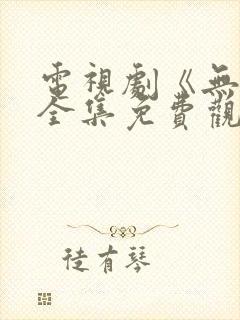 電視劇《無
全集免費觀
徒有琴